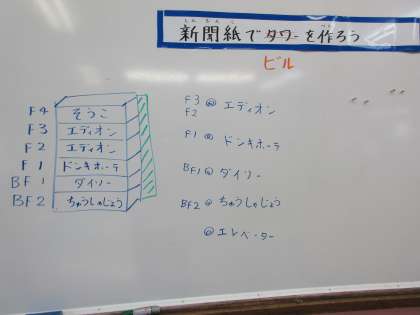 新聞紙でタワーを作ろう
ビル
F4 そうこ
F3 エディオン
F2 エディオン
F1 ドンキホーテ
BF1 ダイソー
BF2 ちゅうしゃじょう
F3 @ エディオン
F2
F1 @ ドンキホーテ
BF1 @ ダイソー
BF2 @ ちゅうしゃじょう
@ エレベーター